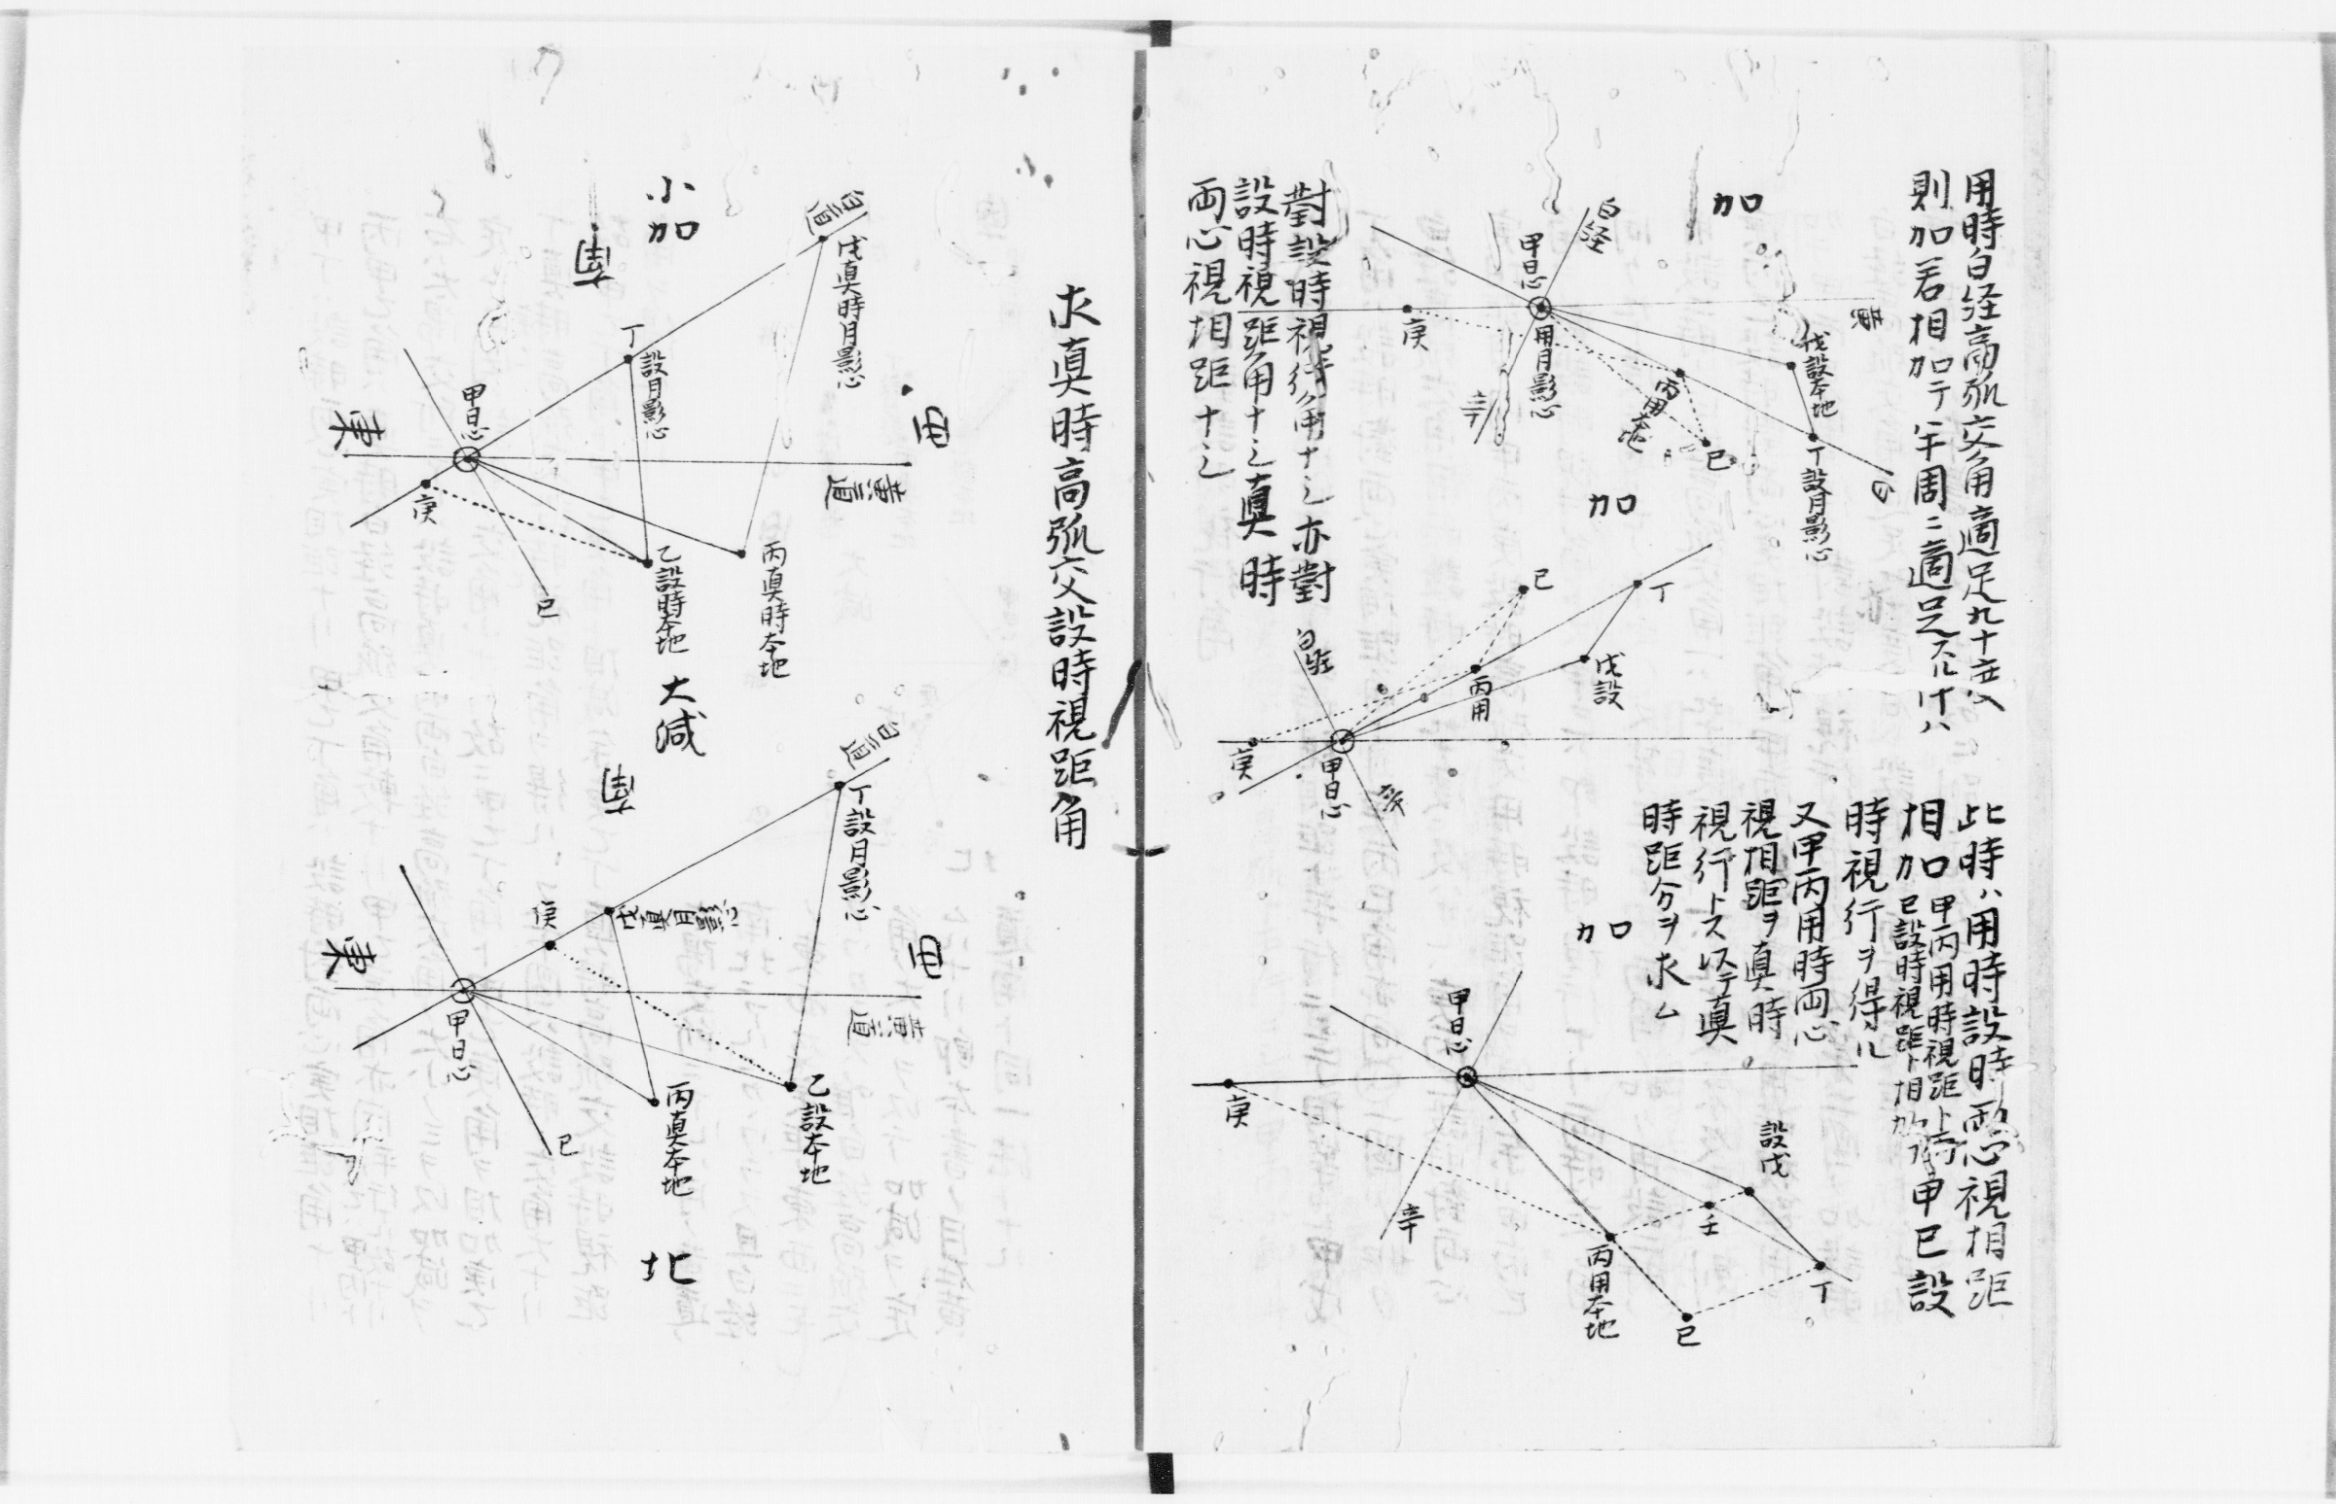 用時白経高弧交角適足九十度
則加若相加テ半周ニ適足スル件ハ
加
白経
甲日心
用月影心
庚
辛
黄
戊設本地
丙用本地
丁設月影心
巳
白
對設時視行角十之亦對
設時視距角十之眞時
両心視相距十之
加
巳
丁
白経
丙用
戊設
庚
甲日心
辛
此時ハ用時設時両心視相距
相加
甲丙用時視距ト
巳設時視距ト相加
甲巳設
時視行ヲ得ル
又甲丙用時両心
視相距ヲ眞時
視行トス以テ眞
時距分ヲ求ム
加
甲日心
庚
設戊
辛
壬
丙用本地
丁
巳
求眞時高弧交設時視距角
小加
白道
戊眞時月影心
丁
設月影心
甲日心
東
西
黄道
庚
巳
乙設時本地
丙眞時本地
大減
白道
丁設月影心
庚
戊眞月影心
東
西
甲日心
黄道
巳
丙眞本地
乙設本地
北